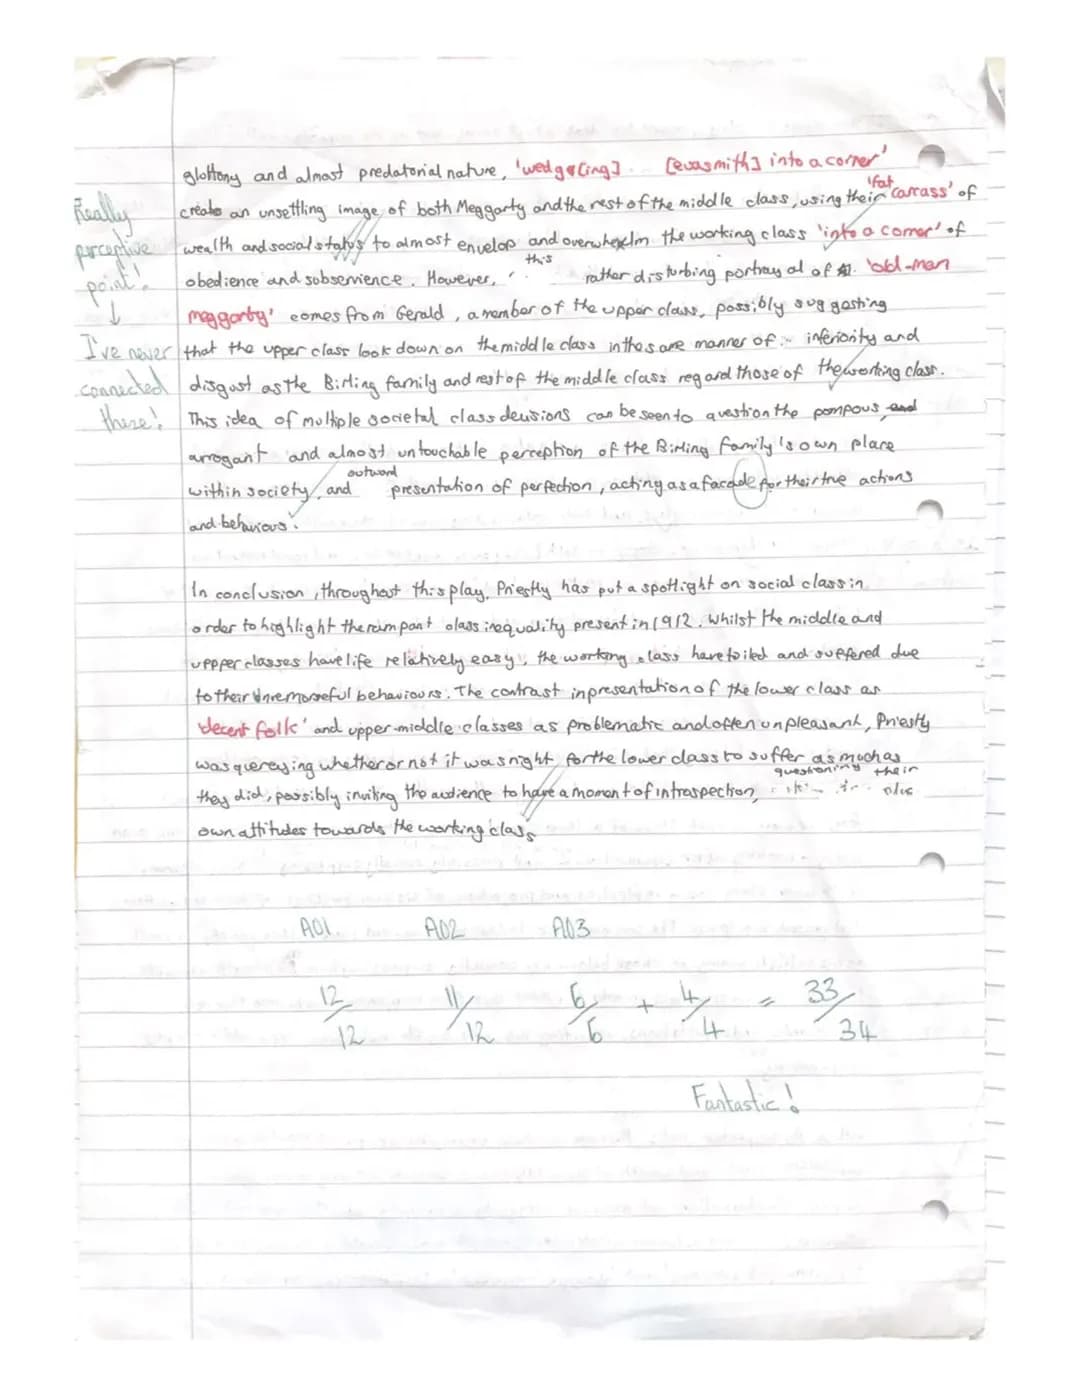 gluttony and almost predatorial nature, 'wedg[ing] .. [eva smith] into a corner'
create an unsettling image of both Meggarty and the rest of the middle class, using their 'fat carrass' of
wealth and social status to almost envelop and overwhelm the working class 'into a corner' of
obedience and subservience. However, this rather disturbing portrayal of 'old-man
meggarty' comes from Gerald, a member of the upper class, possibly suggesting
that the upper class look down on the middle class in the same manner of inferiority and
disgust as the Birling family and rest of the middle class regard those of the working class.
This idea of multiple societal class deusions can be seen to question the pompous,
arrogant and almost untouchable perception of the Birling family's own place
within society, and outward presentation of perfection, acting as a facade for their true actions
and behaviours.
Really
perceptive
point!
↓
I've never
connected
these!
In conclusion, throughout this play, Priestly has put a spotlight on social class in
order to highlight the rampant class inequality present in 1912. Whilst the middle and
uppper classes have life relatively easy, the working class have toiled and suffered due
to their unremorseful behaviours. The contrast in presentation of the lower class as
'decent folk' and upper-middle classes as problematic and often unpleasant, Priestly
was quereying whether or not it was right for the lower class to suffer as much as
they did, possibly inviting the audience to have a moment of introspection, questioning their
own attitudes towards the working class
AO1 AO2 AO3
12/12 11/12 6/6 + 4/4 = 33/34
Fantastic!